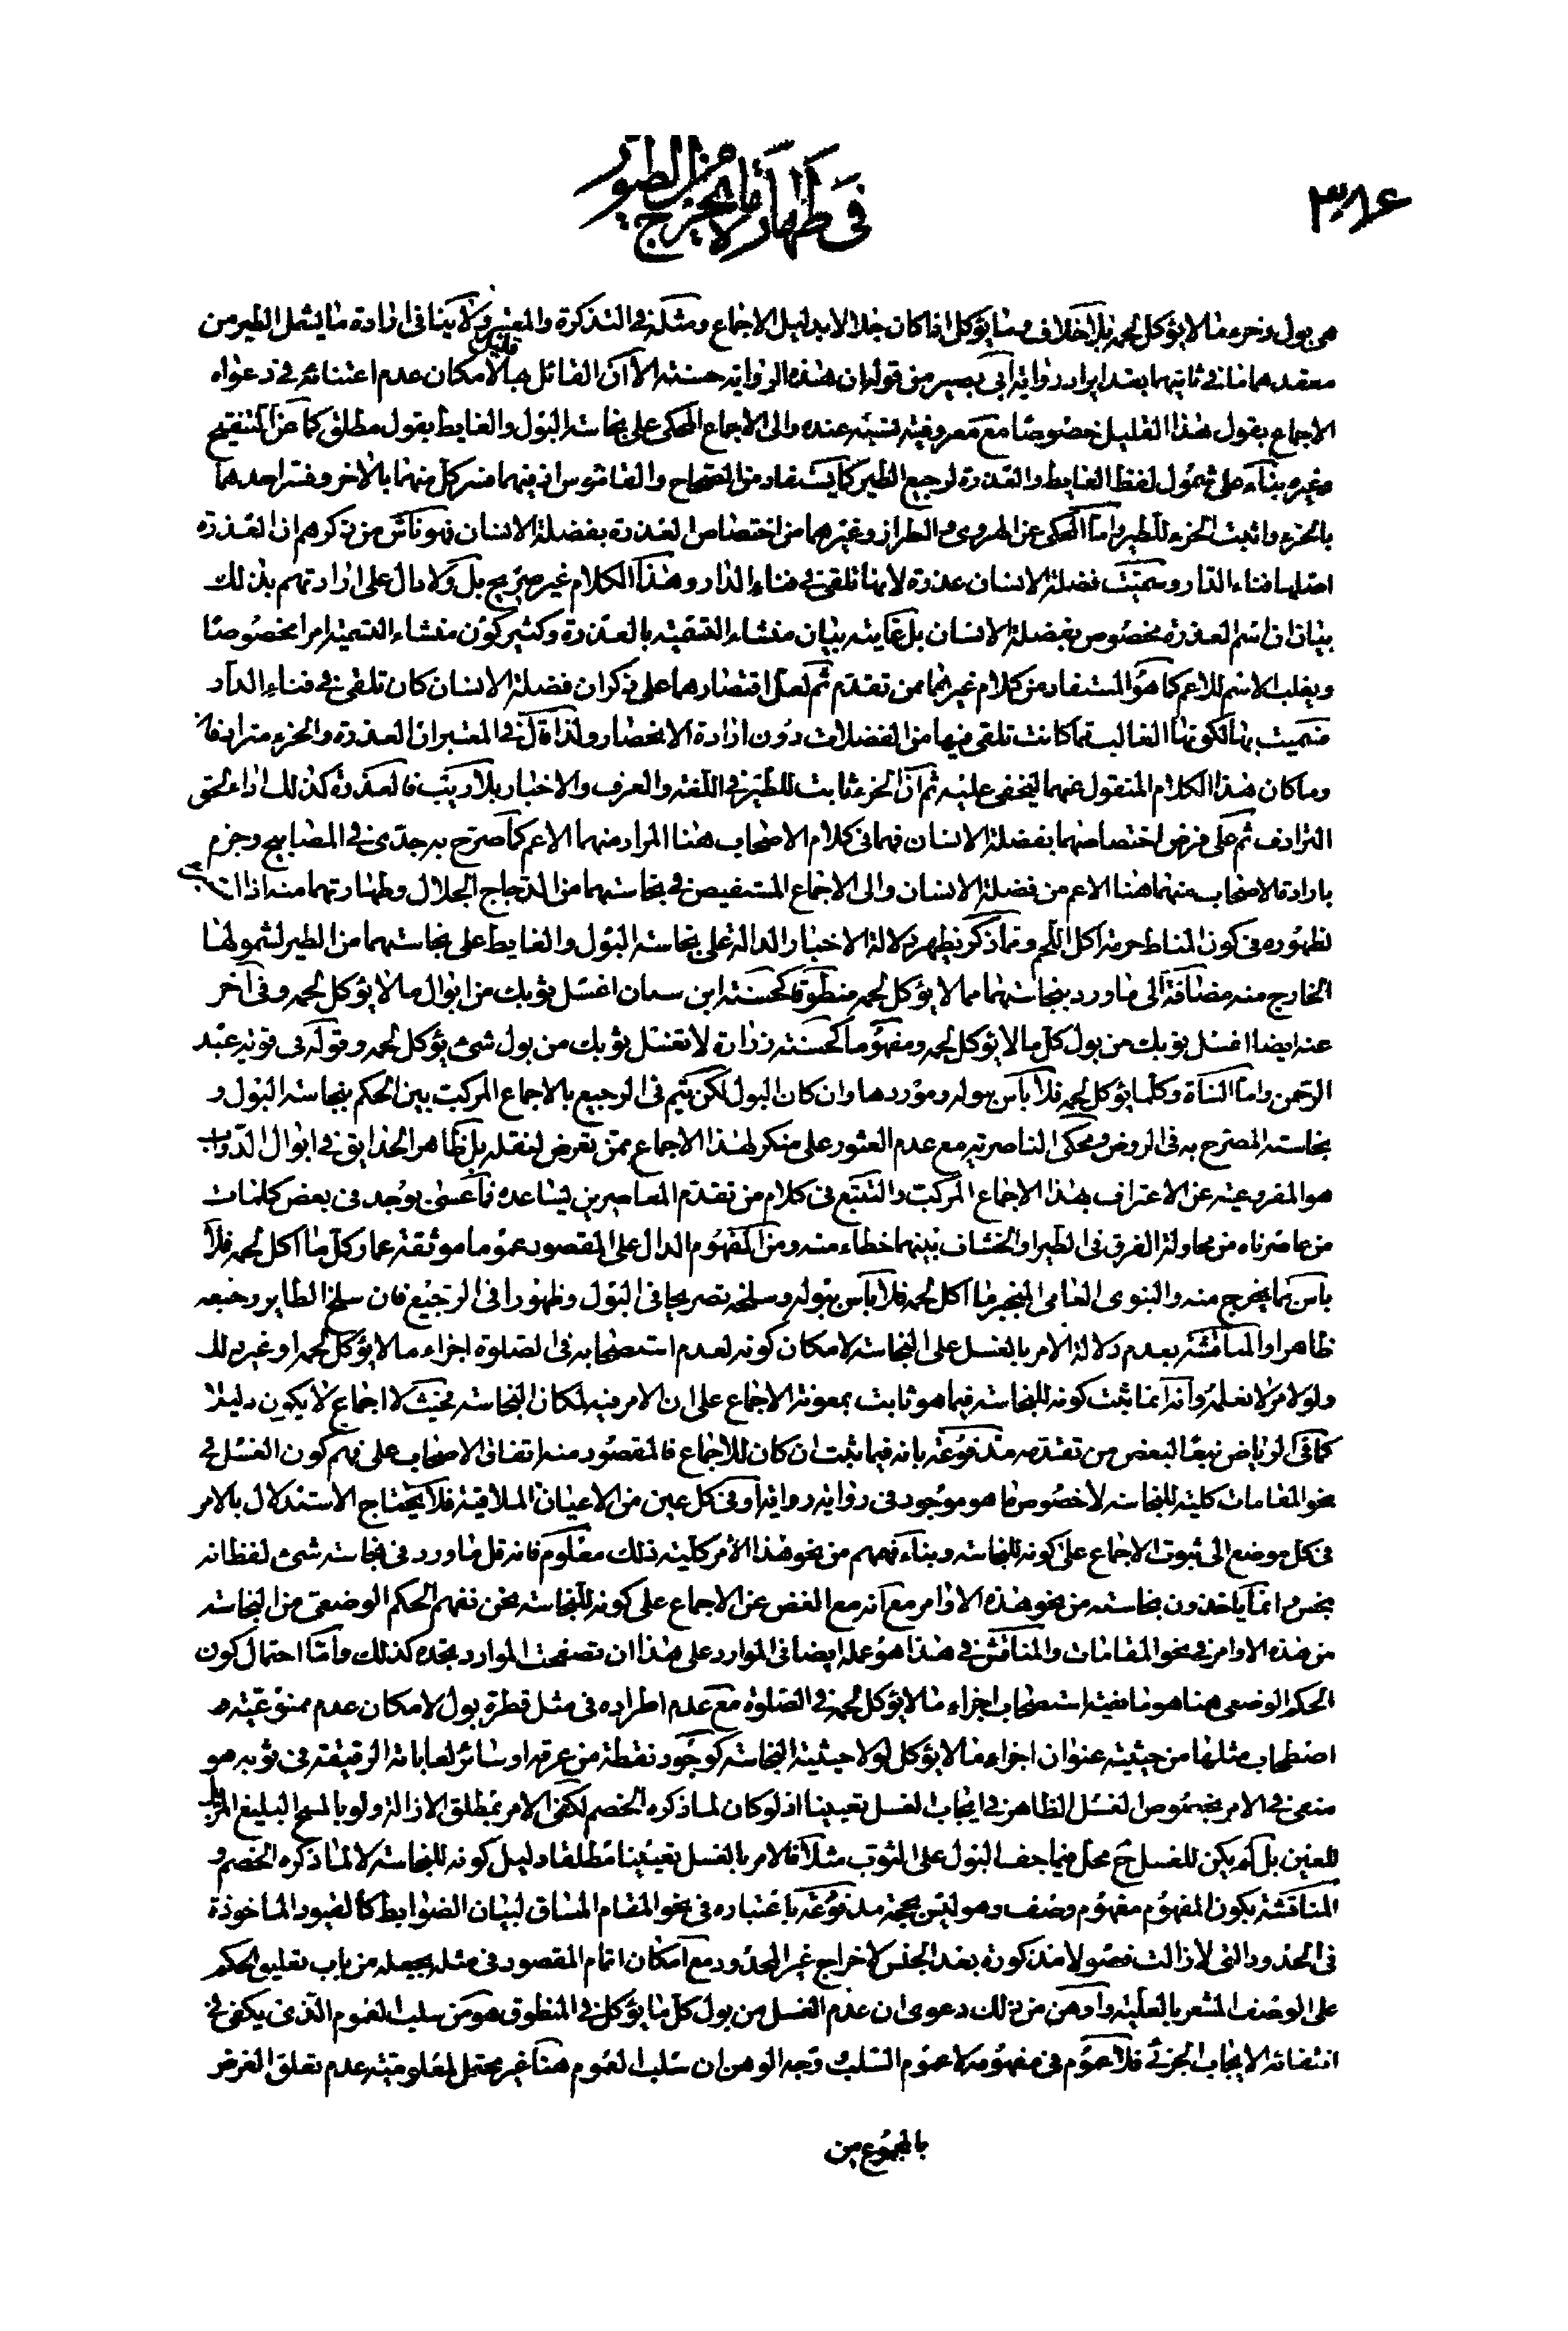 ٣٨٤
في طهارة ما لا يخرج من الطيور
هى بول وخرء ما لا يؤكل لحمه بلا خلاف وما يؤكل اذا كان جلالا بدليل الاجماع ومثله فى التذكرة والمعتبر ولا ينافى ارادة ما يشمل الطير من
معقدهما ما فى ثانيهما بعد ايراد رواية ابى بصير من قوله ان هذه الرواية حسنة الا ان القائل بها قليل لامكان عدم اعتنائه فى دعواه
الاجماع بقول هذا القليل خصوصا مع معروفية نسبه عنده والى الاجماع المحكى على نجاسة البول والغايط بقول مطلق كما عن التنقيح
وغيره بناء على شمول لفظ الغايط والعذرة لرجيع الطير كما يستفاد من الصحاح والقاموس اذ فيهما فسر كل منهما بالاخر وفسر احدهما
بالخرء واثبت الخرء للطير واما المحكى عن الهروى والطراز وغيرهما من اختصاص العذرة بفضلة الانسان فهو ناش من ذكرهم ان العذرة
اصلها فناء الدار وسميت فضلة الانسان عذرة لانها تلقى فى فناء الدار وهذا الكلام غير صريح بل ولا دال على ارادتهم بذلك
بيان ان اسم العذرة مخصوص بفضلة الانسان بل غايته بيان منشاء التسمية بالعذرة وكثير كون منشاء التسمية امرا مخصوصا
ويغلب الاسم للاعم كما هو المستفاد من كلام غيرهما ممن تقدم ثم لعل اقتصارهما على ذكر ان فضلة الانسان كان تلقى فى فناء الدار
فسميت بها لكونها الغالب مما كانت تلقى فيها من الفضلات دون ارادة الانحصار ولذا قال فى المعتبر ان العذرة والخرء مترادفان
وما كان هذا الكلام المنقول عنهما ليخفى عليه ثم ان الخرء ثابت للطير فى اللغة والعرف والاخبار بلا ريب فالعذرة كذلك اداء لحق
الترادف ثم على فرض اختصاصهما بفضلة الانسان فهما فى كلام الاصحاب هنا المراد منهما الاعم كما صرح به جدى فى المصابيح وجزم
بارادة الاصحاب منهما هنا الاعم من فضلة الانسان والى الاجماع المستفيض فى نجاستهما من الدجاج الجلال وطهارتهما منه اذا
لظهوره فى كون المناط حرمة اكل اللحم ومما ذكر يظهر دلالة الاخبار الدالة على نجاسة البول والغايط على نجاستهما من الطير لشمولها
الخارج منه مضافة الى ما ورد بنجاستهما مما لا يؤكل لحمه منطوقا كحسنة ابن سنان اغسل ثوبك من ابوال ما لا يؤكل لحمه وفى آخر
عنه ايضا اغسل ثوبك من بول كل ما لا يؤكل لحمه ومفهوما كحسنة زرارة لا تغسل ثوبك من بول شئ يؤكل لحمه وقوله فى قوية عبد
الرحمن واما الشاة وكلما يؤكل لحمه فلا بأس ببوله وموردها وان كان البول لكن يتم فى الرجيع بالاجماع المركب بين الحكم بنجاسة البول و
نجاسته المصرح به فى الروض ومحكى الناصرية مع عدم العثور على منكر لهذا الاجماع ممن تعرض لنقله بل ظاهر الحدايق فى ابوال الدواب
هو المفروغية عن الاعتراف بهذا الاجماع المركب والتتبع فى كلام من تقدم المعاصرين يساعده فما عسى يوجد فى بعض كلمات
من عاصرناه من محاولة الفرق فى الطير او الخشاف بينهما خطاء منه ومن المفهوم الدال على المقصود عموما موثقة عمار كل ما اكل لحمه فلا
بأس بما يخرج منه والنبوى العامى المنجبر ما اكل لحمه فلا بأس ببوله وسلحه تصريحا فى البول وظهورا فى الرجيع فان سلح الطاير رجيعه
ظاهرا والمناقشة بعدم دلالة الامر بالغسل على النجاسة لامكان كونه لعدم استصحابه فى الصلوة اجزاء ما لا يؤكل لحمه او غير ذلك
ولو لامر لا نعلمه وانه انما يثبت كونه للنجاسة فيما هو ثابت بمعونة الاجماع على ان الامر فيه لمكان النجاسة فحيث لا اجماع لا يكون دليلا
كما فى الرياض تبعا لبعض من تقدمه مدفوعة بانه فيما ثبت ان كان للاجماع فالمقصود منه اتفاق الاصحاب على فهم كون الغسل فى
نحو المقامات كلية للنجاسة لا خصوص ما هو موجود فى رواية رواية او فى كل عين من الاعيان الملاقية فلا يحتاج الاستدلال بالامر
فى كل موضع الى ثبوت الاجماع على كونه للنجاسة وبناء فهمهم من نحو هذا الامر كلية ذلك معلوم فانه قل ما ورد فى نجاسة شئ لفظ انه
نجس وانما يأخذون نجاسته من نحو هذه الاوامر مع انه مع الغض عن الاجماع على كونه للنجاسة نحن نفهم الحكم الوضعى من النجاسة
من هذه الاوامر فى نحو المقامات والمناقش فى هذا هو عليه ايضا فى الموارد على هذا ان تصفحت الموارد تجده كذلك واما احتمال كون
الحكم الوضعى هنا هو مانعية استصحاب اجزاء ما لا يؤكل لحمه فى الصلوة مع عدم اطراده فى مثل قطرة بول لامكان عدم ممنوعية
اصطحاب مثلها من حيثية عنوان اجزاء ما لا يؤكل لولا حيثية النجاسة كوجود نقطة من عرقه او سائر لعاباته الرقيقة فى ثوبه هو
منفى فى الامر بخصوص الغسل الظاهر فى ايجاب الغسل تعيينا اذ لو كان لما ذكره الخصم لكفى الامر بمطلق الازالة ولو بالمسح البليغ المزيل
للعين بل لم يكن للغسل ح محل فيما جف البول على الثوب مثلا فالامر بالغسل تعيينا مطلقا دليل كونه للنجاسة لا لما ذكره الخصم و
المناقشة بكون المفهوم مفهوم وصف وهو ليس بحجة مدفوعة باعتباره فى نحو المقام المساق لبيان الضوابط كالقيود الماخوذة
فى الحدود التى لا زالت فصولا مذكورة بعد الجنس لاخراج غير المحدود مع امكان اتمام المقصود فى مثله بجعله من باب تعليق الحكم
على الوصف المشعر بالعلية واوهن من ذلك دعوى ان عدم الغسل من بول كل ما يؤكل فى المنطوق هو من سلب العموم الذى يكفى فى
انتفائه الايجاب الجزئى فلا عموم فى مفهومه لا عموم السلب وجه الوهن ان سلب العموم هنا غير محتمل لمعلومية عدم تعلق الغرض
بالمجموع من